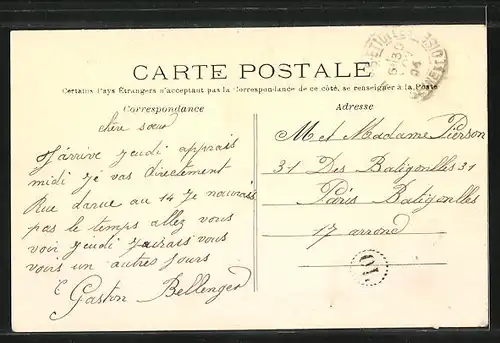 CARTE POSTALE
Certains Pays Étrangers n'acceptant pas la Correspondance de ce côté, se renseigner à la Poste
Correspondance
Adresse
chère sœur
J'arrive jeudi apprais
midi Je vas directement
Rue darue au 14 Je naurais
pas le temps allez vous
voir jeudi Jairais vous
voirs un autres Jours
Gaston Bellenger
M et Madame Pierson
31 Des Batigonlles 31
Paris Batigonlles
17 arrond
OISE